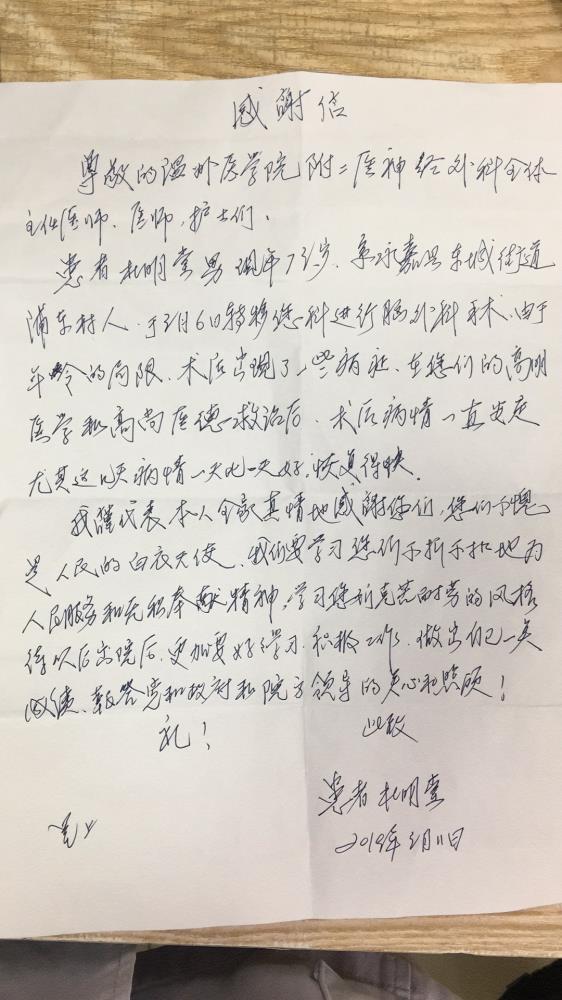 感謝信
尊敬的温州医学院附二医神经外科全体
主任医师、医师,护士们。
患者杜明堂男现年73岁、系永嘉县东城街道
浦东村人、于2月6日转移您科进行脑外科手术、由于
年龄的局限、术后出现了一些病症、在您们的高明
医学和高尚医德救治后、术后病情一直安定
尤其这几天病情一天比一天好,恢复得快.
我谨代表本人全家真情地感謝你们,您们不愧
是人民的白衣天使、我们要学习您们不折不扣地为
人民服务和无积奉献精神,学习您们克苦耐劳的风格
待以后出院后、更加要好好学习、积极工作、做出自己一点
成绩、報答党和政府和院方领导的关心和照顾!
礼! 此致
患者 杜明堂
2019年2月11日